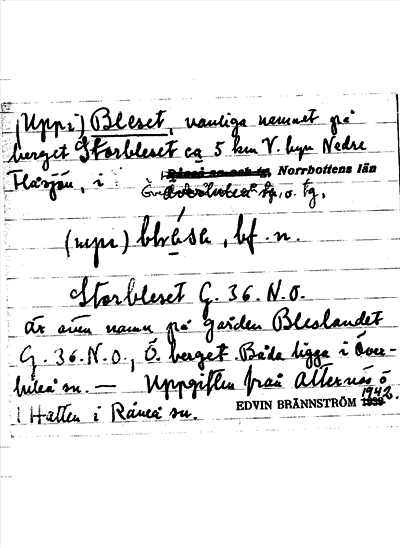 (Uppi) Bleset, vanliga namnet på
berget Storbleset ca 5 km V. byn Nedre
Flåsjön, i Råneå sn och tg, Norrbottens län
Överluleå sn. o. tg.
(uppi)
bf. n.
Storbleset G. 36. N.O.
är även namn på gården Bleslandet
G. 36. N.O., Ö. berget. Båda ligga i Över-
luleå sn. — Uppgiften från Alternäs ö
i Hatten i Råneå sn.
EDVIN BRÄNNSTRÖM 1939 1942.